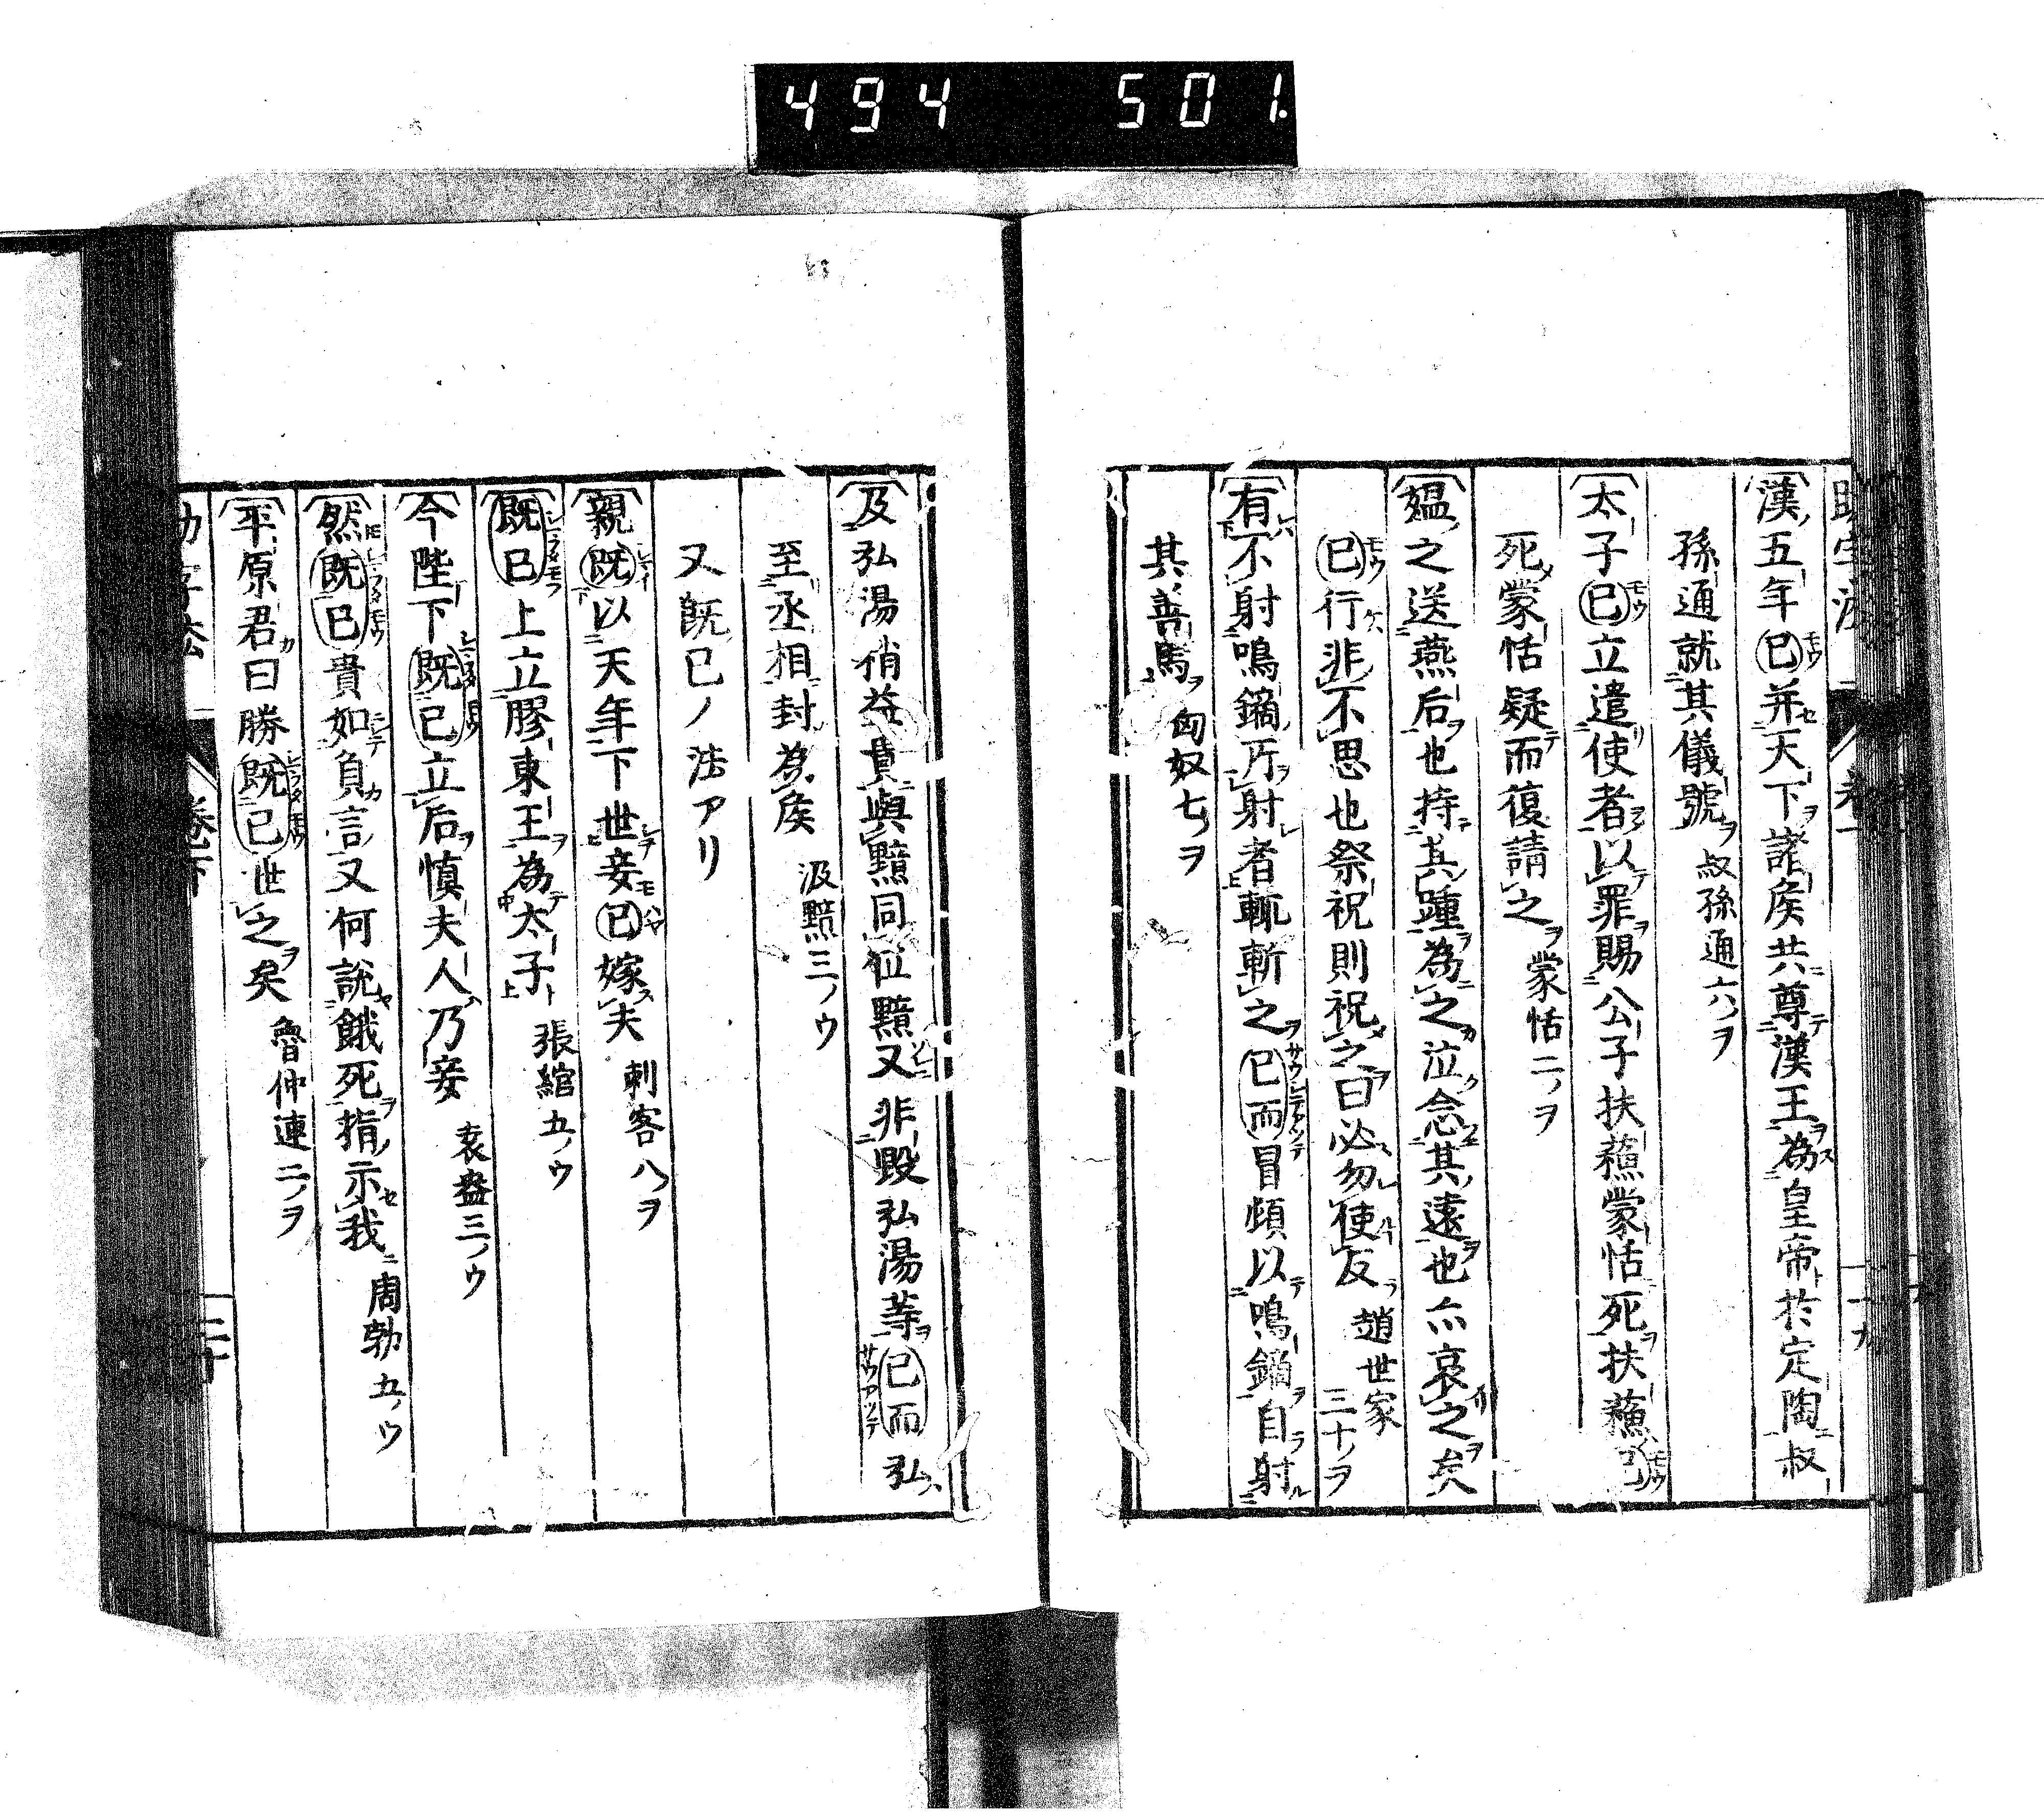 494 501
漢五年已并天下諸矦共尊漢王為皇帝於定陶叔
孫通就其儀號 叔孫通六ノヲ
太子已立遣使者以罪賜公子扶蘓蒙恬死扶蘓已
死蒙恬疑而復請之 蒙恬二ノヲ
媪之送燕后也持其踵為之泣念其遠也亦哀之矣
已行非不思也祭祝則祝之曰必勿使反 趙世家三十ノヲ
有不射鳴鏑所射者輒斬之已而冒頓以鳴鏑自射
其善馬 匈奴七ノヲ
及弘湯稍益貴與黯同位黯又非毀弘湯等已而弘
至丞相封為矦 汲黯三ノウ
又既已ノ法アリ
親既以天年下世妾已嫁夫 刺客八ノヲ
既已上立膠東王為太子 張綰五ノウ
今陛下既已立后慎夫人乃妾 袁盎三ノウ
然既已貴如負言又何說餓死指示我 周勃五ノウ
平原君曰勝既已世之矣 魯仲連二ノヲ